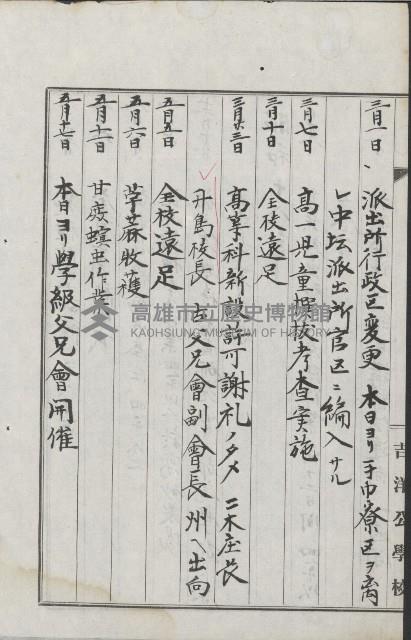 三月一日、派出所行政区変更 本日ヨリ手巾寮区ヲ离
レ中坛派出所官区ニ編入サル
三月七日 高一児童選抜考查実施
三月十日 全校遠足
三月廿三日 高等科新設許可謝礼ノタメ 二木庄長
升島校長 古父兄會副會長 州ヘ出向
五月五日 全校遠足
五月六日 苧麻收穫
五月十二日 甘蔗螟虫作業
五月十七日 本日ヨリ學級父兄會開催
吉洋公學校
高雄市立歷史博物館
KAOHSIUNG MUSEUM OF HISTORY